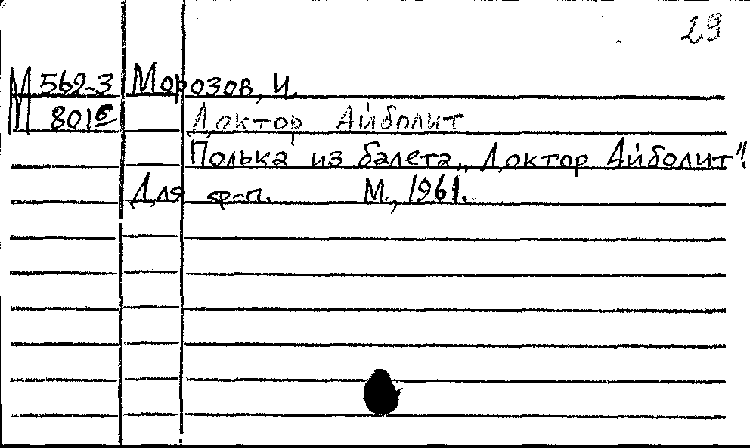 29
М 562-3 Морозов, И.
801 Доктор Айболит
Полька из балета „Доктор Айболит".
Для ф-п. М., 1961.